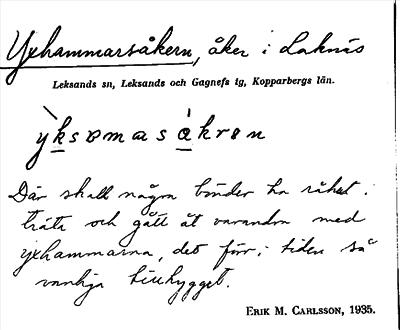 Yxhammarsåkern, åker i Laknäs
Leksands sn, Leksands och Gagnefs tg, Kopparbergs län.
yksɒmas åkrɘn
Där skall några bönder ha råkat i
träta och gått åt varandra med
yxhammarna, det förr i tiden så
vanliga
ERIK M. CARLSSON, 1935.